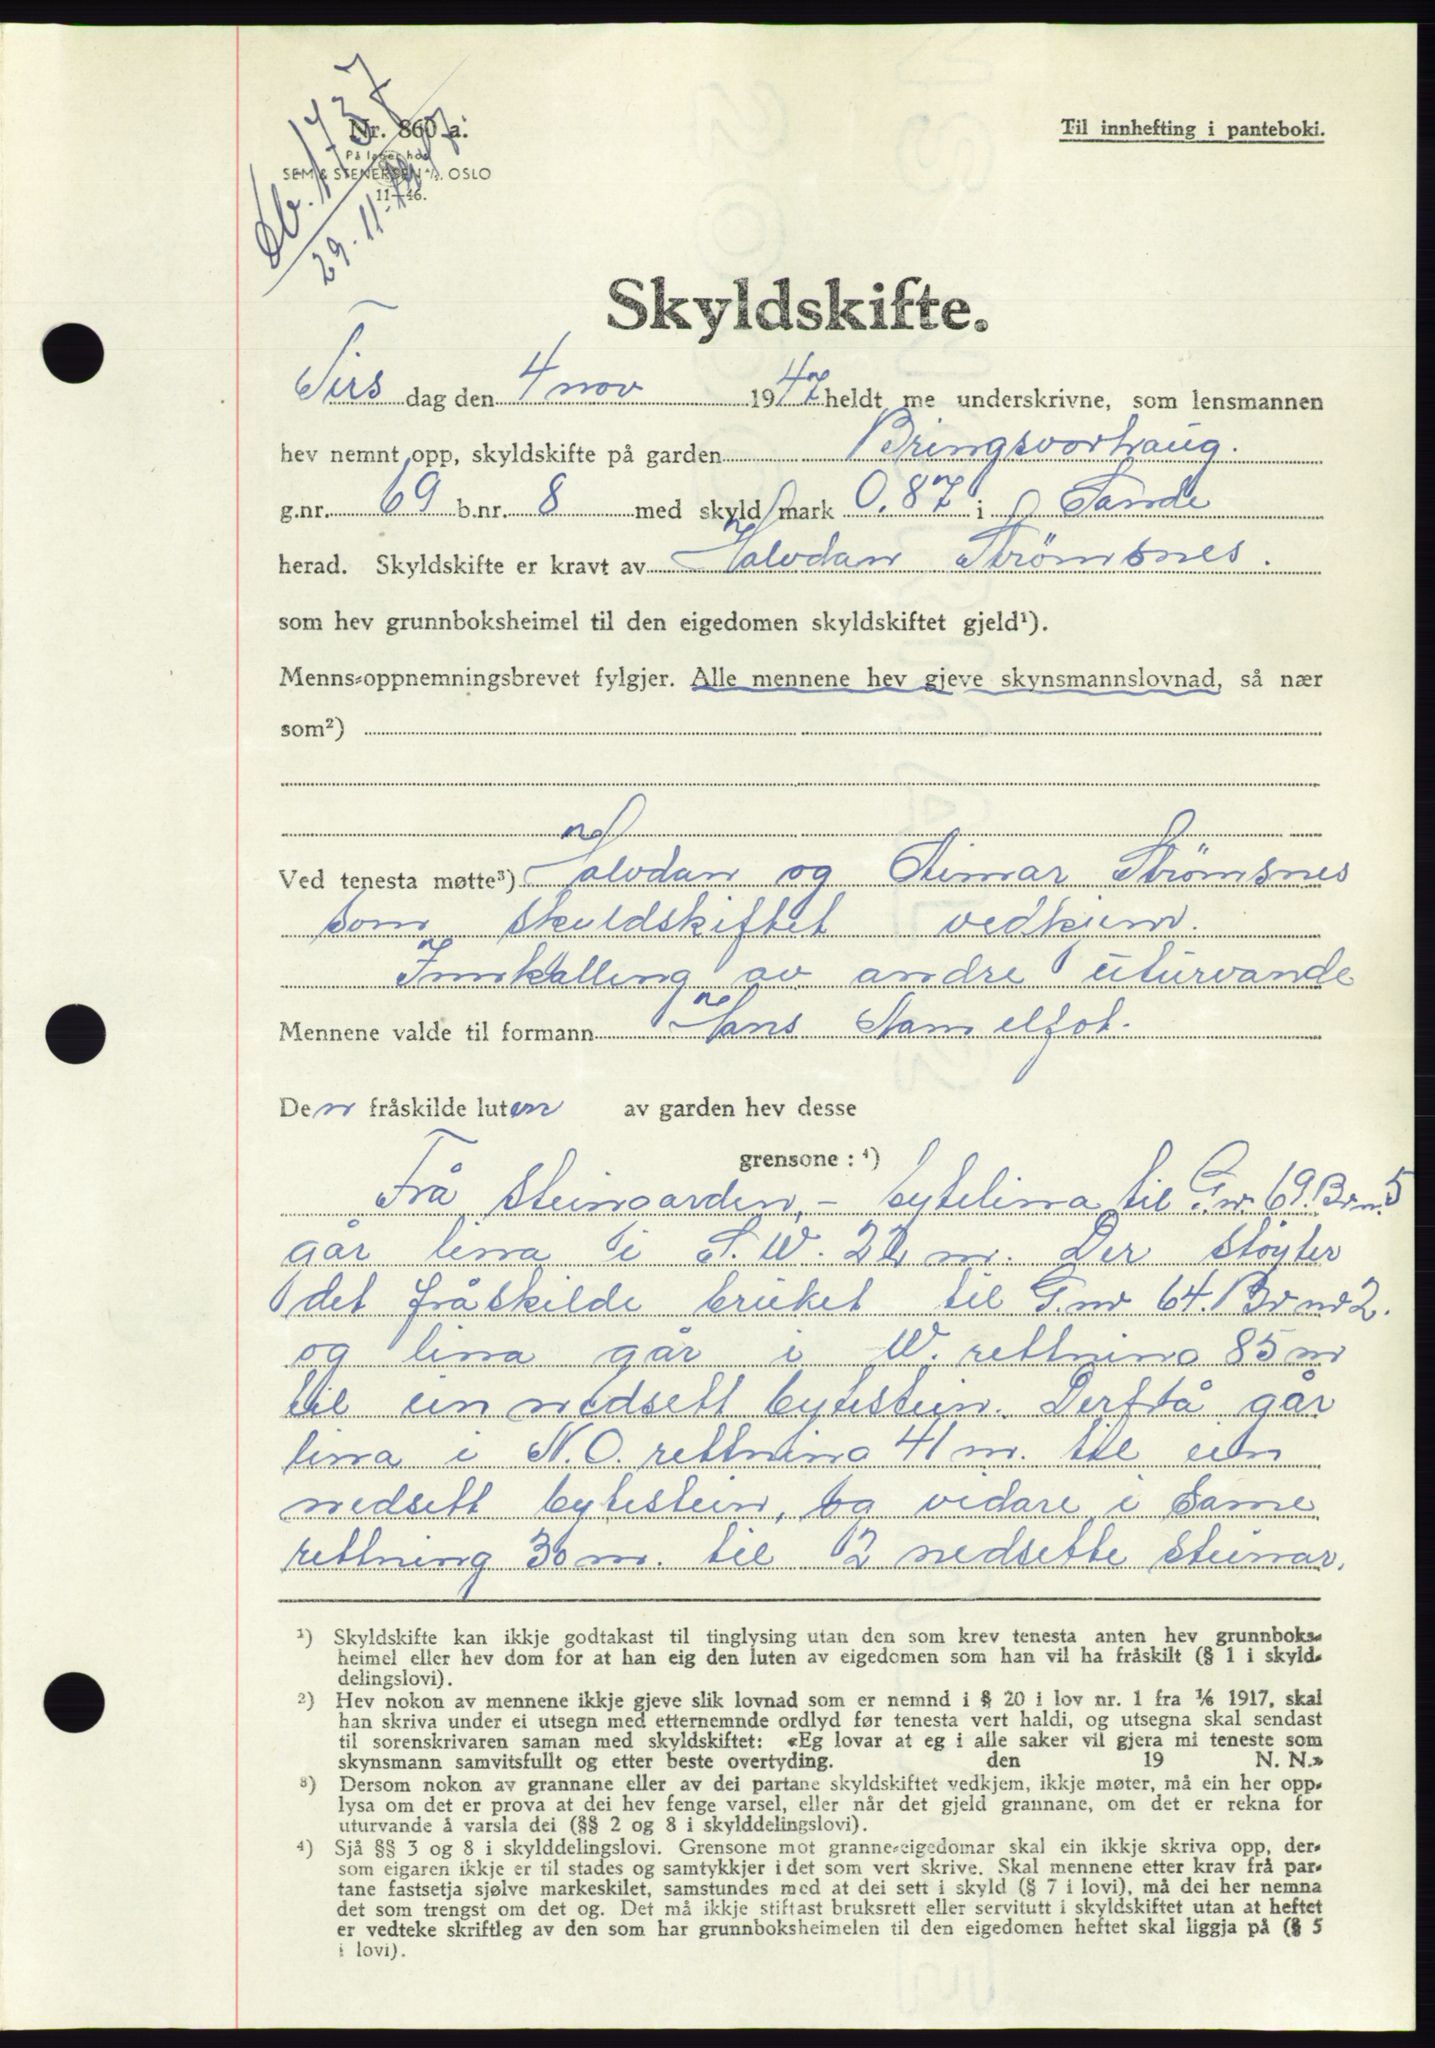 Db. 1737
29.11.1947.
Nr. 860 a.
På lager hos
SEM & STENERSEN A/S, OSLO
11—46.
Til innhefting i panteboki.
Skyldskifte.
Tirs dag den 4 nov 1947 heldt me underskrivne, som lensmannen
hev nemnt opp, skyldskifte på garden Bringsvorhaug.
g.nr. 69 b.nr. 8 med skyld mark 0.87 i Sande
herad. Skyldskifte er kravt av Halvdan Strømsnes.
som hev grunnboksheimel til den eigedomen skyldskiftet gjeld¹).
Menns-oppnemningsbrevet fylgjer. Alle mennene hev gjeve skynsmannslovnad, så nær
som²)
Ved tenesta møtte³) Halvdan og Steinar Strömsnes
som skyldskiftet vedkjem.
Innkalling av andre uturvande
Mennene valde til formann Hans
Den fråskilde luten av garden hev desse
grensone : ⁴)
Frå steingarden, - bytelina til G.nr 69. Br.nr. 5
går lina i S.W. 22 m. Der støyter
det fråskilde bruket til G.nr 64. Br nr 2.
og lina går i W. rettning 85 m
til ein nedsett bytestein. Derfrå går
lina i N.O. rettning 41 m. til ein
nedsett bytestein, og vidare i same
rettning 30 m. til 2 nedsette steinar.
¹) Skyldskifte kan ikkje godtakast til tinglysing utan den som krev tenesta anten hev grunnboks-
heimel eller hev dom for at han eig den luten av eigedomen som han vil ha fråskilt (§ 1 i skyld-
delingslovi).
²) Hev nokon av mennene ikkje gjeve slik lovnad som er nemnd i § 20 i lov nr. 1 fra ¹/₆ 1917, skal
han skriva under ei utsegn med etternemnde ordlyd før tenesta vert haldi, og utsegna skal sendast
til sorenskrivaren saman med skyldskiftet: «Eg lovar at eg i alle saker vil gjera mi teneste som
skynsmann samvitsfullt og etter beste overtyding. den 19 N. N.»
³) Dersom nokon av grannane eller av dei partane skyldskiftet vedkjem, ikkje møter, må ein her opp-
lysa om det er prova at dei hev fenge varsel, eller når det gjeld grannane, om det er rekna for
uturvande å varsla dei (§§ 2 og 8 i skylddelingslovi).
⁴) Sjå §§ 3 og 8 i skylddelingslovi. Grensone mot granne-eigedomar skal ein ikkje skriva opp, der-
som eigaren ikkje er til stades og samtykkjer i det som vert skrive. Skal mennene etter krav frå par-
tane fastsetja sjølve markeskilet, samstundes med at dei sett i skyld (§ 7 i lovi), må dei her nemna
det som trengst om det og. Det må ikkje stiftast bruksrett eller servitutt i skyldskiftet utan at heftet
er vedteke skriftleg av den som har grunnboksheimelen til den eigedomen heftet skal liggja på (§ 5
i lovi).